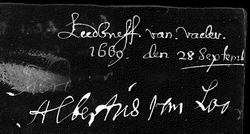 Leedbneff. van. vader.
1669. den 28 Septemb
Albertus van Loo